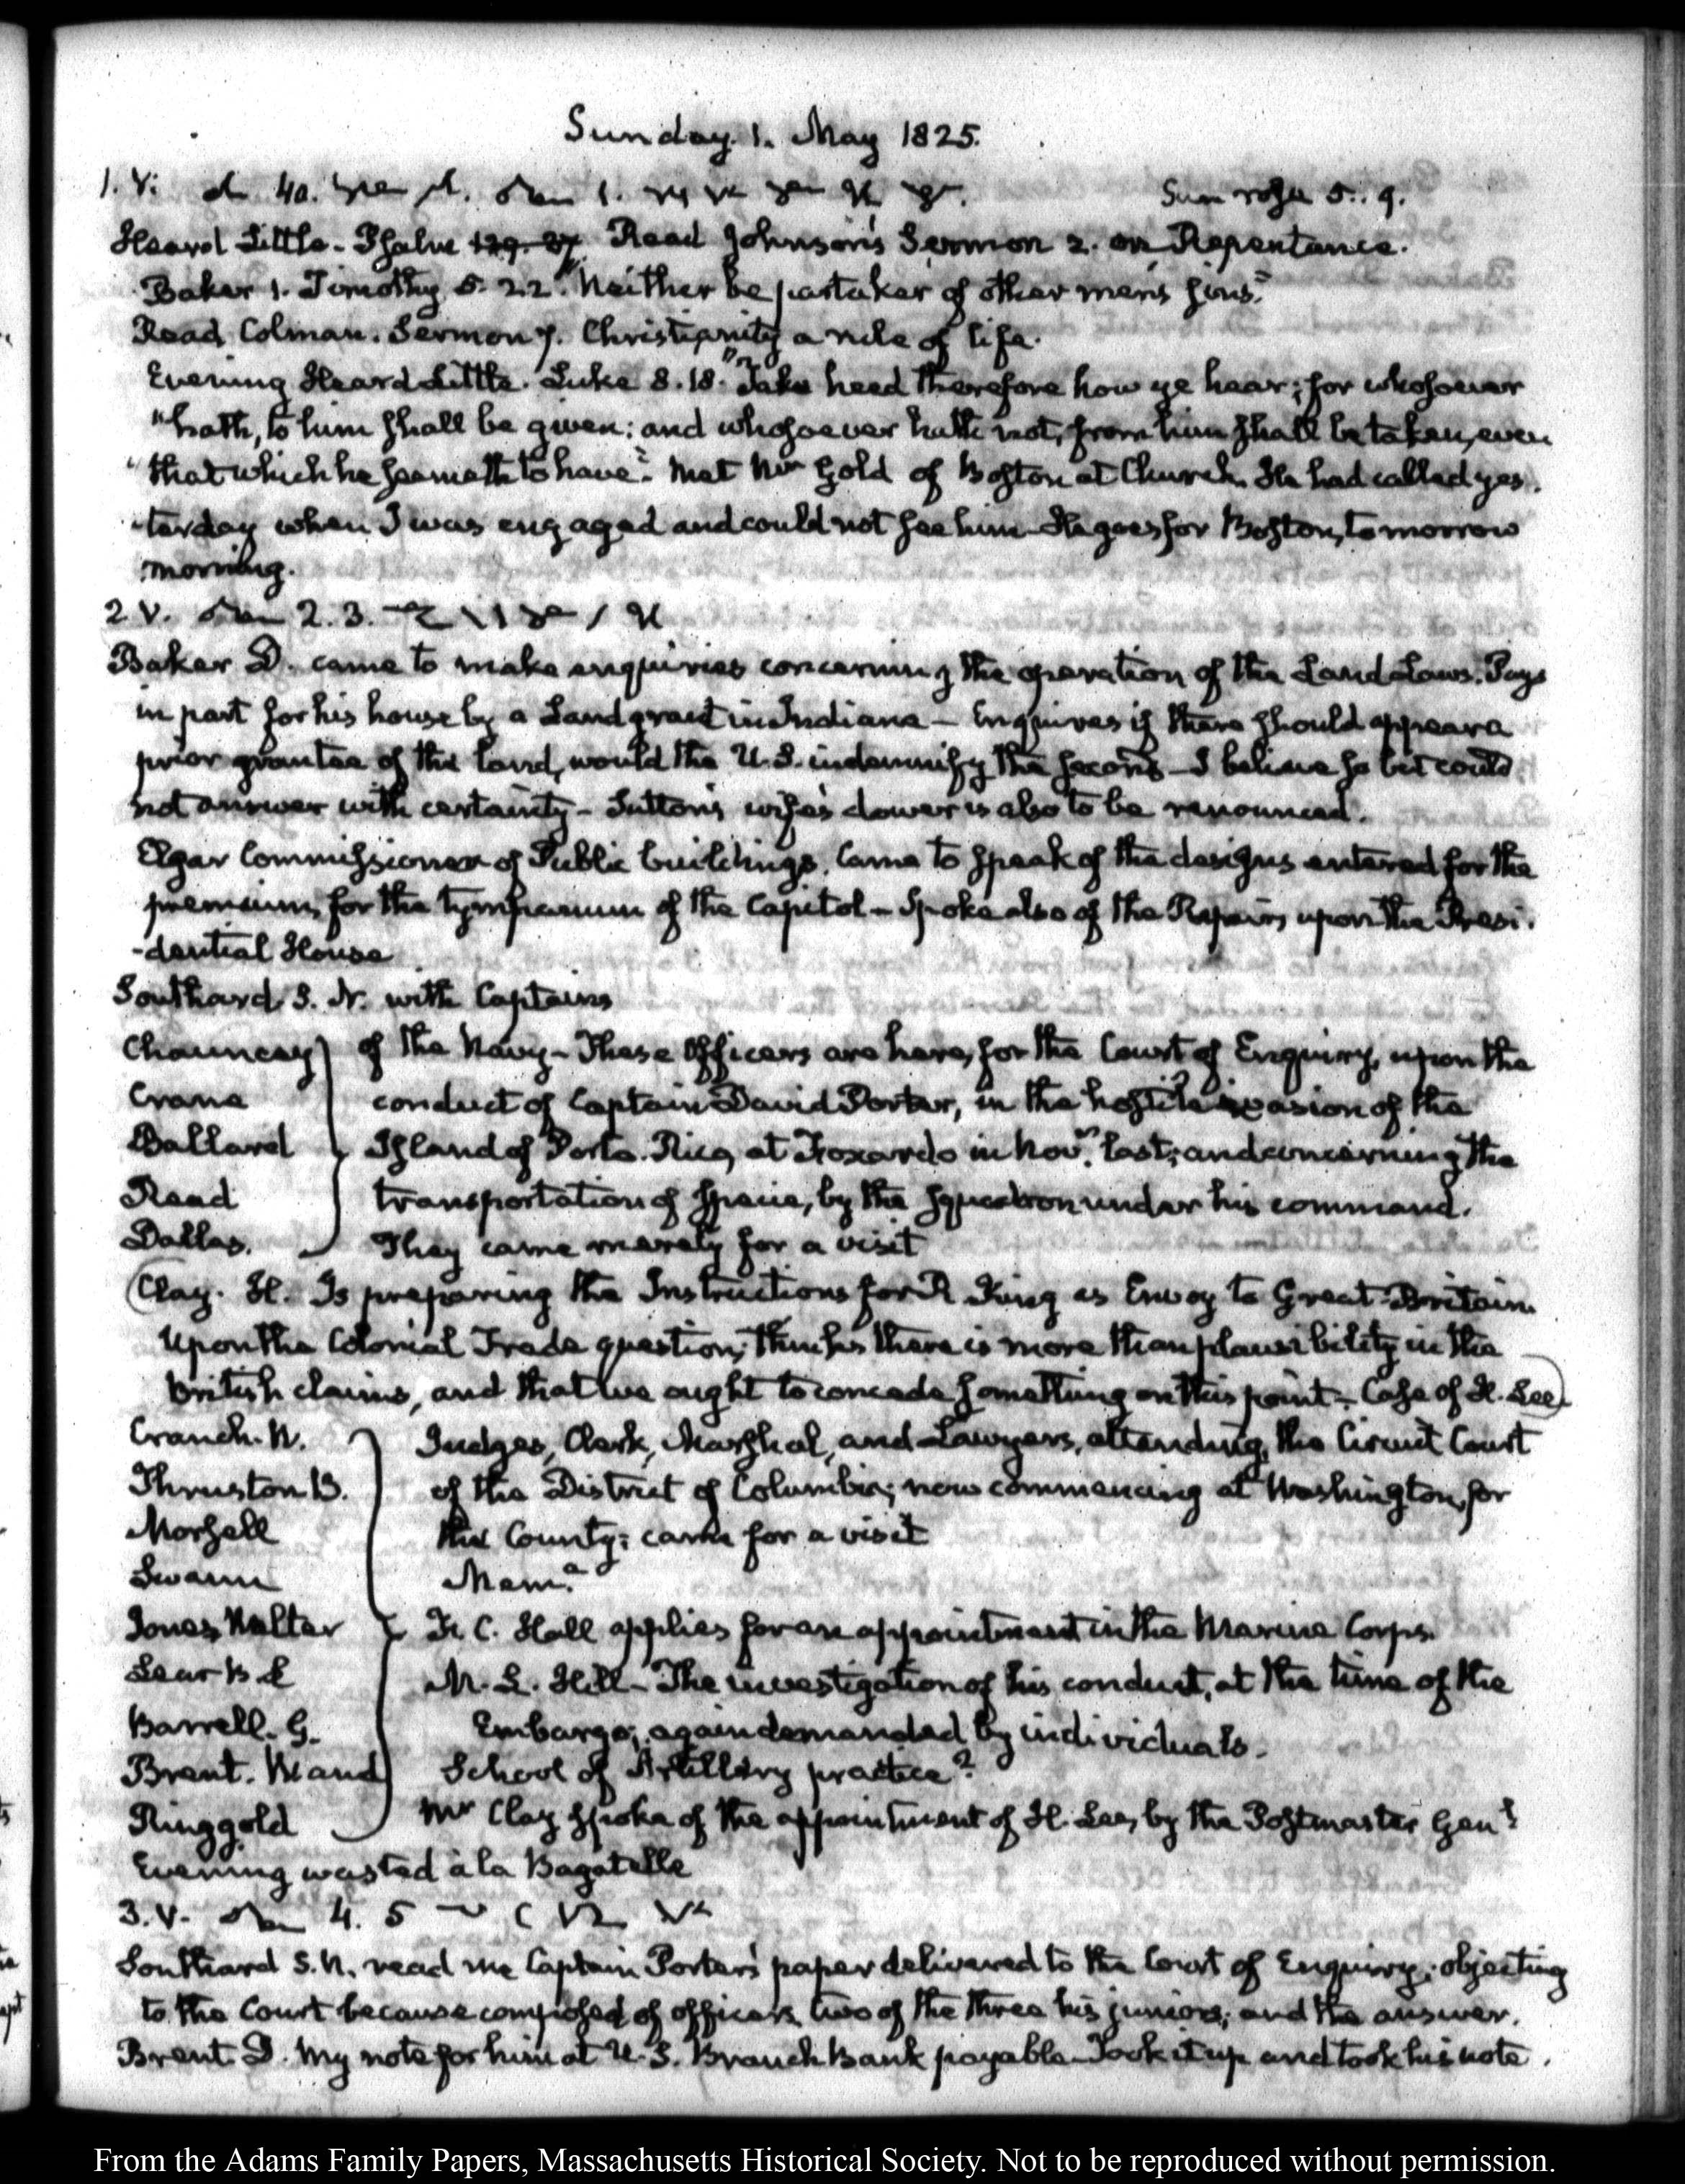 Sunday. 1. May 1825.
1. V: 40. 1. Sun rose 5:. 9.
Heard Little - Psalm 139. 27 Read Johnson's Sermon 2. on Repentance.
Baker 1. Timothy 5. 22. "Neither be partaker of other men's sins."
Read Colman. Sermon 7. Christianity a rule of life.
Evening Heard Little. Luke 8. 18. "Take heed therefore how ye hear; for whosoever
"hath, to him shall be given: and whosoever hath not, from him shall be taken, even
"that which he seemeth to have". Met Mr Gold of Boston at Church. He had called yes-
-terday when I was engaged and could not see him - He goes for Boston, tomorrow
morning.
2 V. 2. 3.
Baker D. came to make enquiries concerning the operation of the Land Laws. Pays
in part for his house by a Land grant in Indiana - Enquires if there should appear a
prior grantee of the land, would the U.S. indemnify the second - I believe so but could
not answer with certainty - Sutton's wife's dower is also to be renounced.
Elgar Commissioner of Public buildings. Came to speak of the designs entered for the
premium, for the tympanum of the Capitol - Spoke also of the Repairs upon the Presi-
-dential House
Southard S. N. with Captains
Chauncey of the Navy - These Officers are here, for the Court of Enquiry, upon the
Crane conduct of Captain David Porter, in the hostile invasion of the
Ballard Island of Porto-Rico, at Foxardo in Novr. last; and concerning the
Read transportation of specie, by the squadron under his command.
Dallas. They came merely for a visit
Clay. H. Is preparing the Instructions for R King as Envoy to Great-Britain.
Upon the Colonial Trade question, thinks there is more than plausibility in the
British claims, and that we ought to concede something on this point - Case of H. Lee.
Cranch. W. Judges, Clerk, Marshal, and Lawyers, attending, the Circuit Court
Thruston B. of the District of Columbia; now commencing at Washington, for
Morsell this County: came for a visit
Swann Mema.
Jones Walter C. Hall applies for an appointment in the Marine Corps.
Lear B. L M. L. Hill - The investigation of his conduct, at the time of the
Barrell. G. Embargo; again demanded by individuals.
Brent. W and School of Artillery practice?
Ringgold Mr Clay spoke of the appointment of H. Lee, by the Postmaster Genl
Evening wasted à la Bagatelle
3. V. 4. 5
Southard S. N. read me Captain Porter's paper delivered to the Court of Enquiry; objecting
to the Court because composed of officers two of the three his juniors; and the answer.
Brent. D. My note for him at U.S. Branch Bank payable - Took it up and took his note.
From the Adams Family Papers, Massachusetts Historical Society. Not to be reproduced without permission.